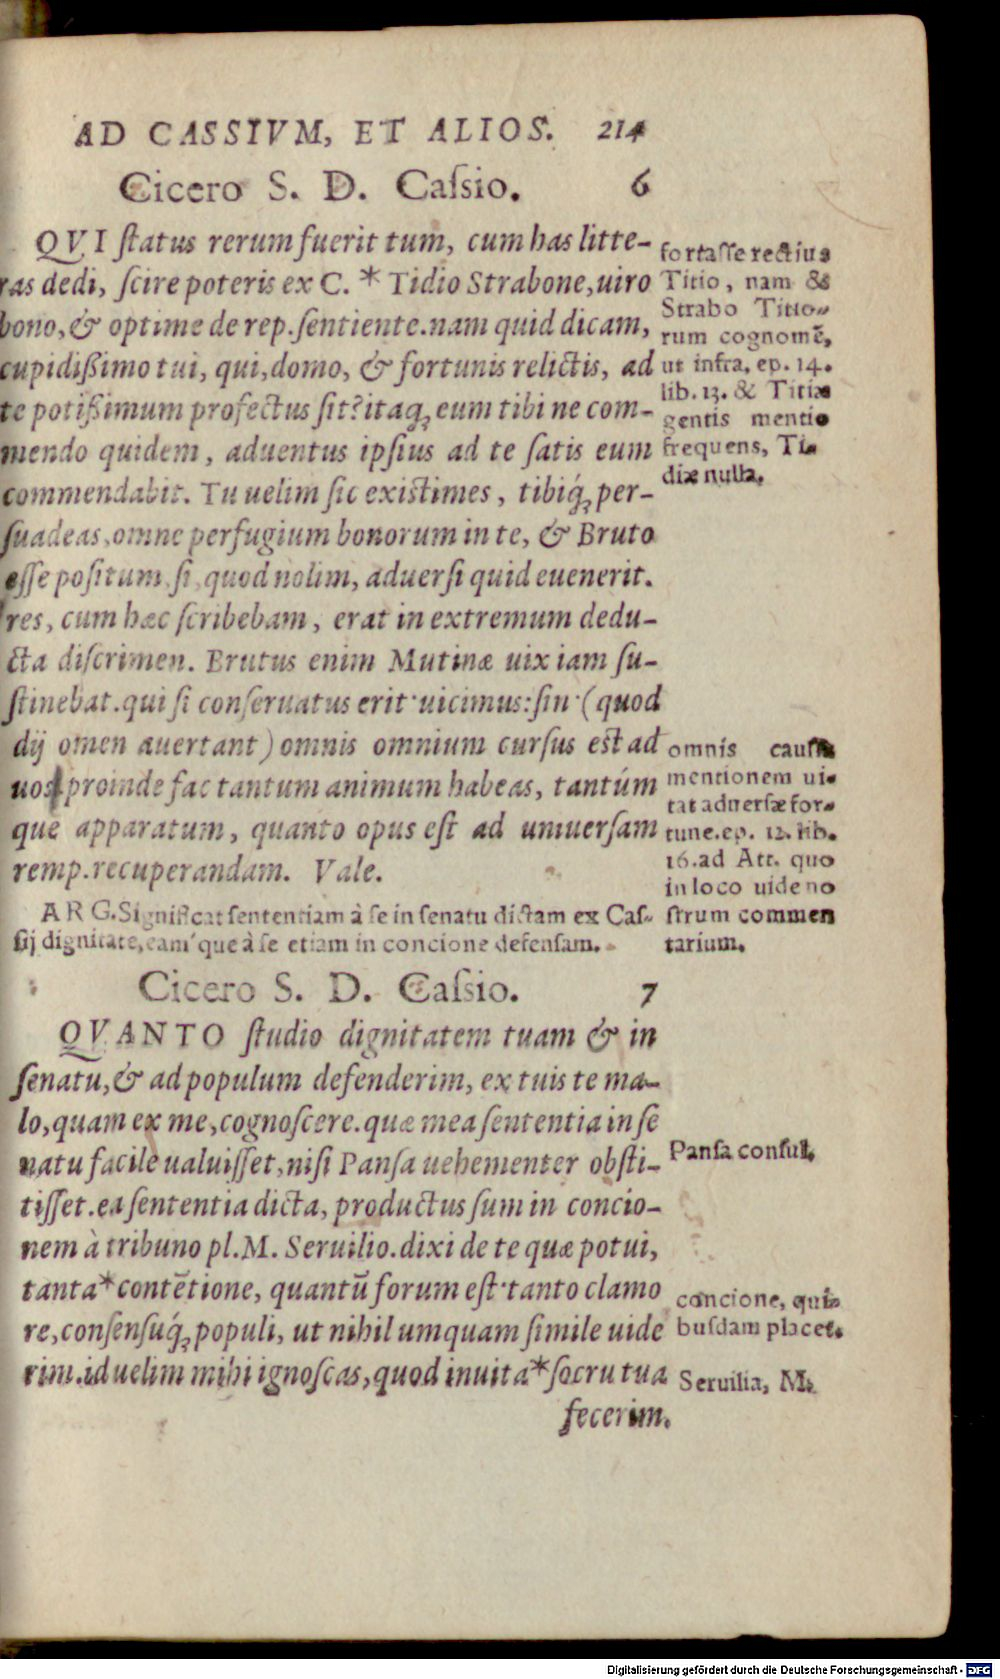 AD CASSIVM, ET ALIOS. 214
Cicero S. D. Caſsio. 6
QVI ſtatus rerum fuerit tum, cum has litte-
ras dedi, ſcire poteris ex C. * Tidio Strabone, uiro
bono, & optime de rep. ſentiente. nam quid dicam,
cupidißimo tui, qui, domo, & fortunis relictis, ad
te potißimum profectus ſit? itaq; eum tibi ne com-
mendo quidem, aduentus ipſius ad te ſatis eum
commendabit. Tu uelim ſic existimes, tibiq́; per-
ſuadeas, omne perfugium bonorum in te, & Bruto
eſſe poſitum, ſi, quod nolim, aduerſi quid euenerit.
res, cum hæc ſcribebam, erat in extremum dedu-
cta diſcrimen. Brutus enim Mutinæ uix iam ſu-
ſtinebat. qui ſi conſeruatus erit· uicimus: ſin· (quod
dij omen auertant) omnis omnium curſus est ad
uos. proinde fac tantum animum habeas, tantúm
que apparatum, quanto opus eſt ad uniuerſam
remp. recuperandam. Vale.
ARG. Significat ſententiam à ſe in ſenatu dictam ex Caſ-
ſij dignitate, eam´que à ſe etiam in concione defenſam.
Cicero S. D. Caſsio. 7
QVANTO ſtudio dignitatem tuam & in
ſenatu, & ad populum defenderim, ex tuis te ma-
lo, quam ex me, cognoſcere. quæ mea ſententia in ſe
natu facile ualuiſſet, niſi Panſa uehementer obſti-
tiſſet. ea ſententia dicta, productus ſum in concio-
nem à tribuno pl. M. Seruilio. dixi de te quæ potui,
tanta * contētione, quantū forum eſt· tanto clamo
re, conſenſuq́; populi, ut nihil umquam ſimile uide
rim. id uelim mihi ignoſcas, quod inuita * ſocru tua
fecerim.
fortaſſe rectius
Titio, nam &
Strabo Titio-
rum cognomē,
ut infra, ep. 14.
lib. 13. & Titiæ
gentis mentio
frequens, Ti-
diæ nulla.
omnis cauſſa
mentionem ui-
tat aduerſæ for-
tune. ep. 12. lib.
16. ad Att. quo
in loco uide no
ſtrum commen
tarium.
Panſa conſul.
concione, qui-
buſdam placet.
Seruilia, M.
Digitalisierung gefördert durch die Deutsche Forschungsgemeinschaft - DFG